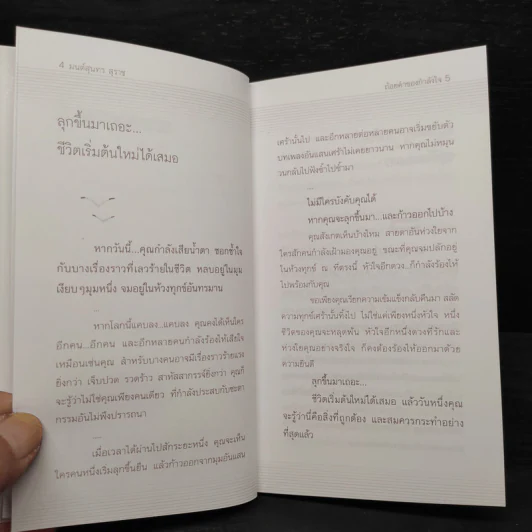 4 มนต์สุนทร สุราช
ลุกขึ้นมาเถอะ...
ชีวิตเริ่มต้นใหม่ได้เสมอ
หากวันนี้...คุณกำลังเสียน้ำตา ชอกช้ำใจ
กับบางเรื่องราวที่เลวร้ายในชีวิต หลบอยู่ในมุม
เงียบๆมุมหนึ่ง จมอยู่ในห้วงทุกข์อันทรมาน
...
หากโลกนี้แคบลง...แคบลง คุณคงได้เห็นใคร
อีกคน...อีกคน และอีกหลายคนกำลังร้องไห้เสียใจ
เหมือนเช่นคุณ สำหรับบางคนอาจมีเรื่องราวร้ายแรง
ยิ่งกว่า เจ็บปวด รวดร้าว สาหัสสากรรจ์ยิ่งกว่า คุณก็
จะรู้ว่าไม่ใช่คุณเพียงคนเดียว ที่กำลังประสบกับชะตา
กรรมอันไม่พึงปรารถนา
...
เมื่อเวลาได้ผ่านไปสักระยะหนึ่ง คุณจะเห็น
ใครคนหนึ่งเริ่มลุกขึ้นยืน แล้วก้าวออกจากมุมอันแสน
ถ้อยคำของกำลังใจ 5
เศร้านั้นไป และอีกหลายต่อหลายคนอาจเริ่มขยับตัว
บทเพลงอันแสนเศร้าไม่เคยยาวนาน หากคุณไม่หมุน
วนกลับไปฟังซ้ำซ้ำมา
...
ไม่มีใครบังคับคุณได้
หากคุณจะลุกขึ้นมา...และก้าวออกไปบ้าง
คุณสังเกตเห็นบ้างไหม สายตาอันห่วงใยจาก
ใครสักคนกำลังเฝ้ามองคุณอยู่ ขณะที่คุณจมปลักอยู่
ในห้วงทุกข์ ณ ที่ตรงนี้ หัวใจอีกดวง..ก็กำลังร้องไห้
ไปพร้อมกับคุณ
ขอเพียงคุณเรียกความเข้มแข็งกลับคืนมา สลัด
ความทุกข์เศร้านั้นทิ้งไป ไม่ใช่แค่เพียงหนึ่งหัวใจ หนึ่ง
ชีวิตของคุณจะหลุดพ้น หัวใจอีกหนึ่งดวงที่รักและ
ห่วงใยคุณอย่างจริงใจ ก็คงต้องร้องไห้ออกมาด้วย
ความยินดี
ลุกขึ้นมาเถอะ...
ชีวิตเริ่มต้นใหม่ได้เสมอ แล้ววันหนึ่งคุณ
จะรู้ว่านี่คือสิ่งที่ถูกต้อง และสมควรกระทำอย่าง
ที่สุดแล้ว